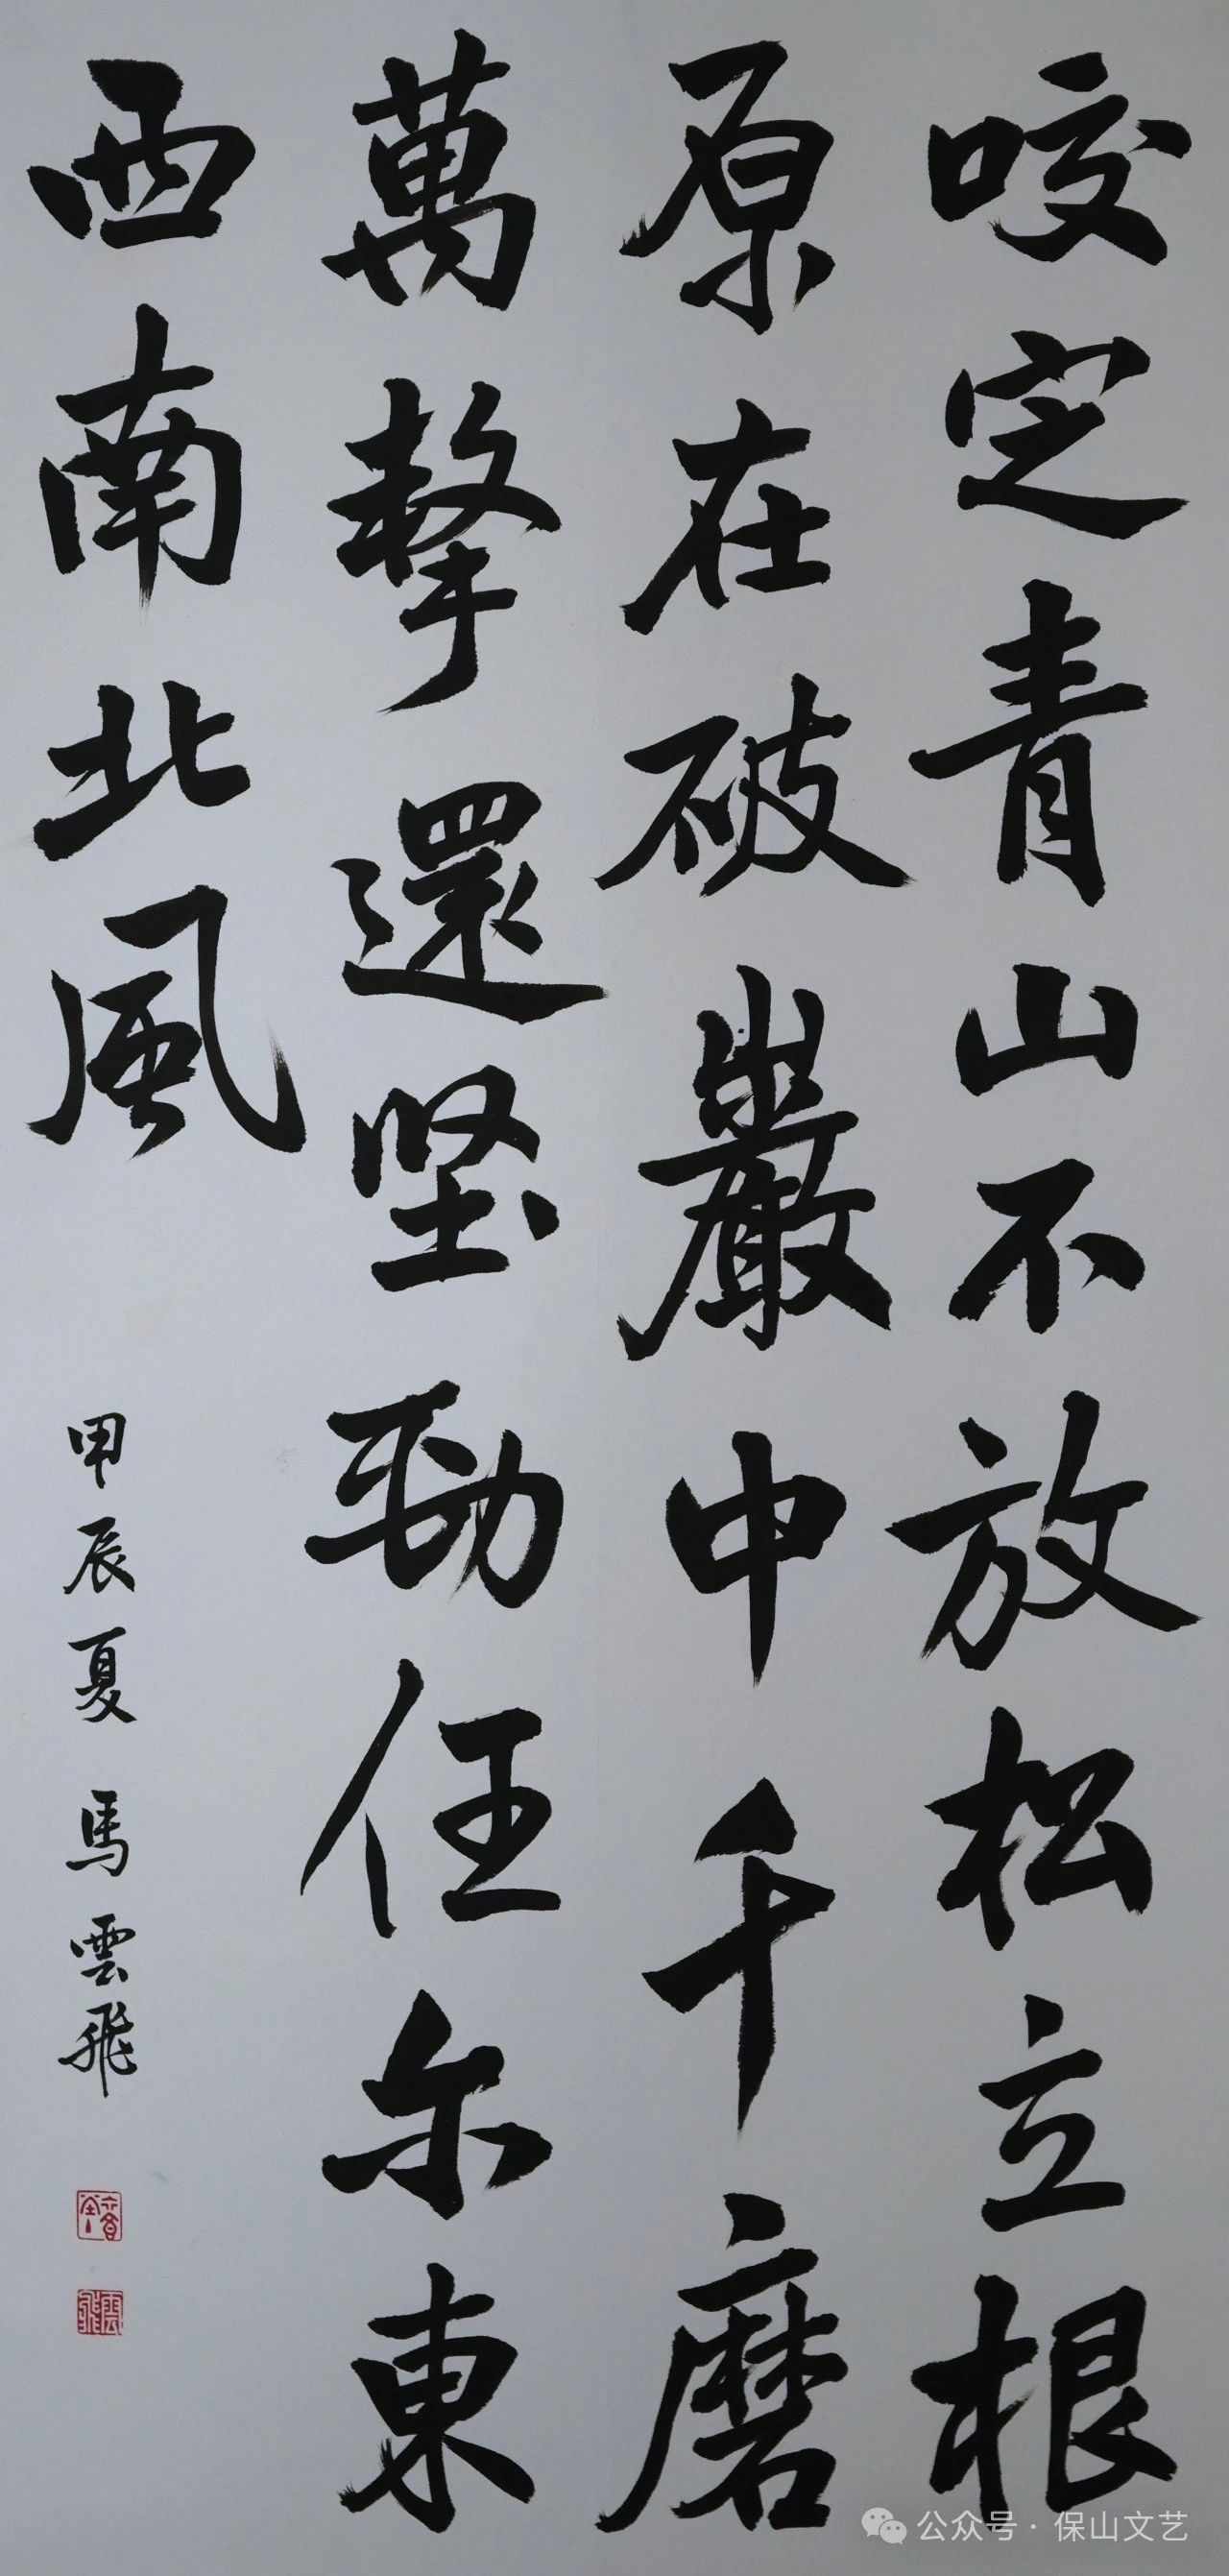 咬定青山不放松立根
原在破巖中千磨
萬擊還坚劲任尔東
西南北風
甲辰夏 馬雲飛
公众号·保山文艺